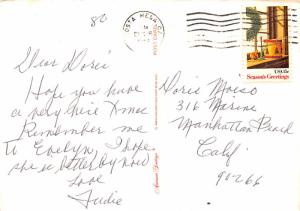 80
OSTA MESA, C
PM
USA 15c
Season's Greetings
Dear Doris
Hope you have
a very nice Xmas
Remember me
to Evelyn, I hope
she is better by now
Love
Judie
Doris Moiso
316 Marine
Manhattan Beach
Calif
90266